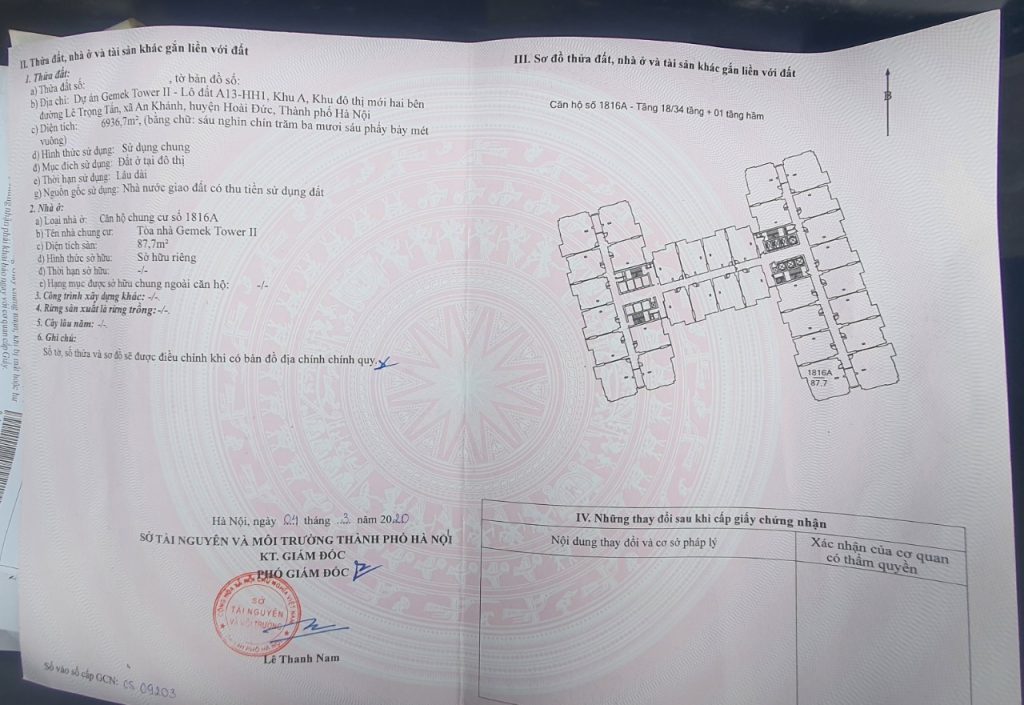 II. Thửa đất, nhà ở và tài sản khác gắn liền với đất
1. Thửa đất:
a) Thửa đất số: , tờ bản đồ số:
b) Địa chỉ: Dự án Gemek Tower II - Lô đất A13-HH1, Khu A, Khu đô thị mới hai bên
đường Lê Trọng Tấn, xã An Khánh, huyện Hoài Đức, Thành phố Hà Nội
c) Diện tích: 6936,7m², (bằng chữ: sáu nghìn chín trăm ba mươi sáu phẩy bảy mét
vuông)
d) Hình thức sử dụng: Sử dụng chung
đ) Mục đích sử dụng: Đất ở tại đô thị
e) Thời hạn sử dụng: Lâu dài
g) Nguồn gốc sử dụng: Nhà nước giao đất có thu tiền sử dụng đất
2. Nhà ở:
a) Loại nhà ở: Căn hộ chung cư số 1816A
b) Tên nhà chung cư: Tòa nhà Gemek Tower II
c) Diện tích sàn: 87,7m²
d) Hình thức sở hữu: Sở hữu riêng
đ) Thời hạn sở hữu: -/-
e) Hạng mục được sở hữu chung ngoài căn hộ: -/-
3. Công trình xây dựng khác: -/-.
4. Rừng sản xuất là rừng trồng: -/-.
5. Cây lâu năm: -/-
6. Ghi chú:
Số tờ, số thửa và sơ đồ sẽ được điều chỉnh khi có bản đồ địa chính chính quy.
Hà Nội, ngày 04 tháng 3 năm 2020
SỞ TÀI NGUYÊN VÀ MÔI TRƯỜNG THÀNH PHỐ HÀ NỘI
KT. GIÁM ĐỐC
PHÓ GIÁM ĐỐC
SỞ
TÀI NGUYÊN
VÀ MÔI TRƯỜNG
Lê Thanh Nam
Số vào sổ cấp GCN: CS 09203
III. Sơ đồ thửa đất, nhà ở và tài sản khác gắn liền với đất
Căn hộ số 1816A - Tầng 18/34 tầng + 01 tầng hầm
B
1816A
87.7
IV. Những thay đổi sau khi cấp giấy chứng nhận
Nội dung thay đổi và cơ sở pháp lý
Xác nhận của cơ quan
có thẩm quyền